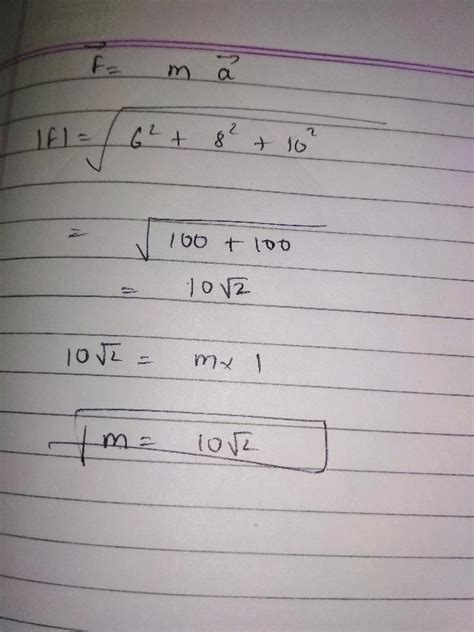 F⃗ = m a⃗
|F| = √(6² + 8² + 10²)
= √(100 + 100)
= 10√2
10√2 = m × 1
m = 10√2